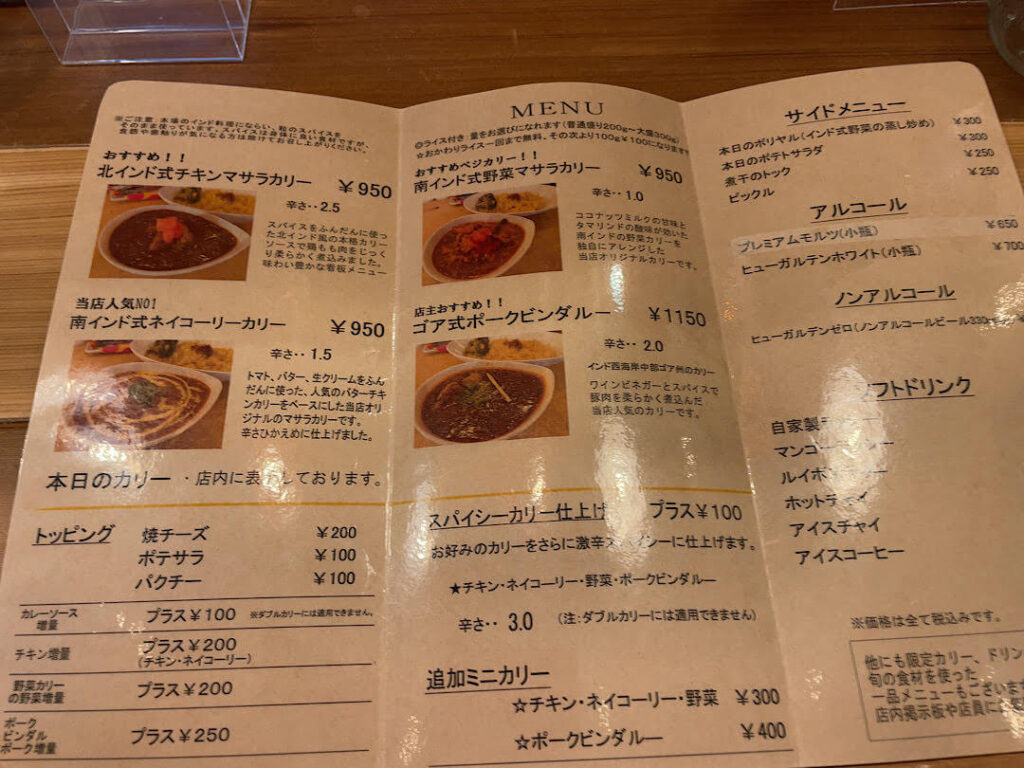 ※ご注意 本場のインド料理にならい、粒のスパイスを
そのまま使っています。スパイスは身体に良い食材ですが、
食感や歯触りが気になる方は除けてお召し上がりください。
おすすめ！！
北インド式チキンマサラカリー ￥950
辛さ‥2.5
スパイスをふんだんに使っ
た北インド風の本格カリー
ソースで鶏もも肉をじっく
り柔らかく煮込みました。
味わい豊かな看板メニュー
当店人気NO1
南インド式ネイコーリーカリー ￥950
辛さ‥ 1.5
トマト、バター、生クリームをふん
だんに使った、人気のバターチキ
ンカリーをベースにした当店オリ
ジナルのマサラカリーです。
辛さひかえめに仕上げました。
本日のカリー ・店内に表 しております。
トッピング 焼チーズ ￥200
ポテサラ ￥100
パクチー ￥100
カレーソース
増量 プラス￥100 ※ダブルカリーには適用できません。
チキン増量 プラス￥200
(チキン・ネイコーリー)
野菜カリー
の野菜増量 プラス￥200
ポーク
ビンダル
ポーク増量 プラス￥250
MENU
◎ライス付き 量をお選びになれます(普通盛り200g～大盛300g)
☆おかわりライス一回まで無料、その次より100g￥100になります
おすすめベジカリー！！
南インド式野菜マサラカリー ￥950
辛さ‥1.0
ココナッツミルクの甘味と
タマリンドの酸味が効いた
南インドの野菜カリーを
独自にアレンジした
当店オリジナルカリーです。
店主おすすめ！！
ゴア式ポークビンダルー ￥1150
辛さ‥ 2.0
インド西海岸中部ゴア州のカリー
ワインビネガーとスパイスで
豚肉を柔らかく煮込んだ
当店人気のカリーです。
スパイシーカリー仕上げ プラス￥100
お好みのカリーをさらに激辛ス イシーに仕上げます。
★チキン・ネイコーリー・野菜・ポークビンダルー
辛さ‥ 3.0 (注:ダブルカリーには適用できません)
追加ミニカリー
☆チキン・ネイコーリー・野菜 ￥300
☆ポークビンダルー ￥400
サイドメニュー
本日のポリヤル(インド式野菜の蒸し炒め) ￥300
本日のポテトサラダ ￥300
煮干のトック ￥250
ピックル ￥250
アルコール
プレミアムモルツ(小瓶) ￥650
ヒューガルデンホワイト(小瓶) ￥700
ノンアルコール
ヒューガルデンゼロ(ノンアルコールビール330
フトドリンク
自家製
マンゴー
ルイボ
ホットチャイ
アイスチャイ
アイスコーヒー
※価格は全て税込みです。
他にも限定カリー、ドリン
旬の食材を使った
一品メニューもございます
店内掲示板や店員に